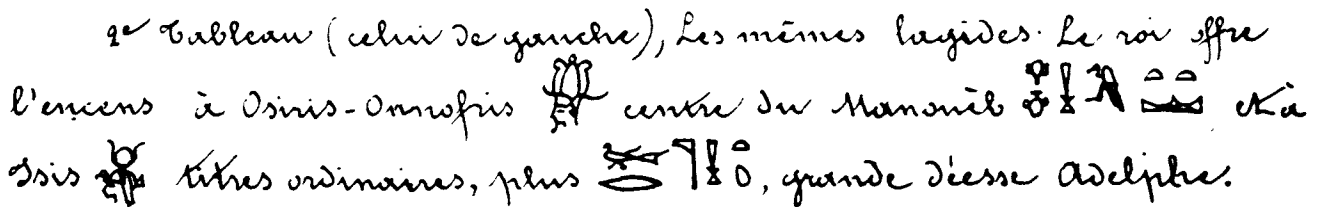 2e Tableau (celui de gauche), Les mêmes lagides. Le roi offre
l'encens à Osiris-Onnofris centre du Manouèb et à
Isis titres ordinaires, plus , grande déesse Adelphe.